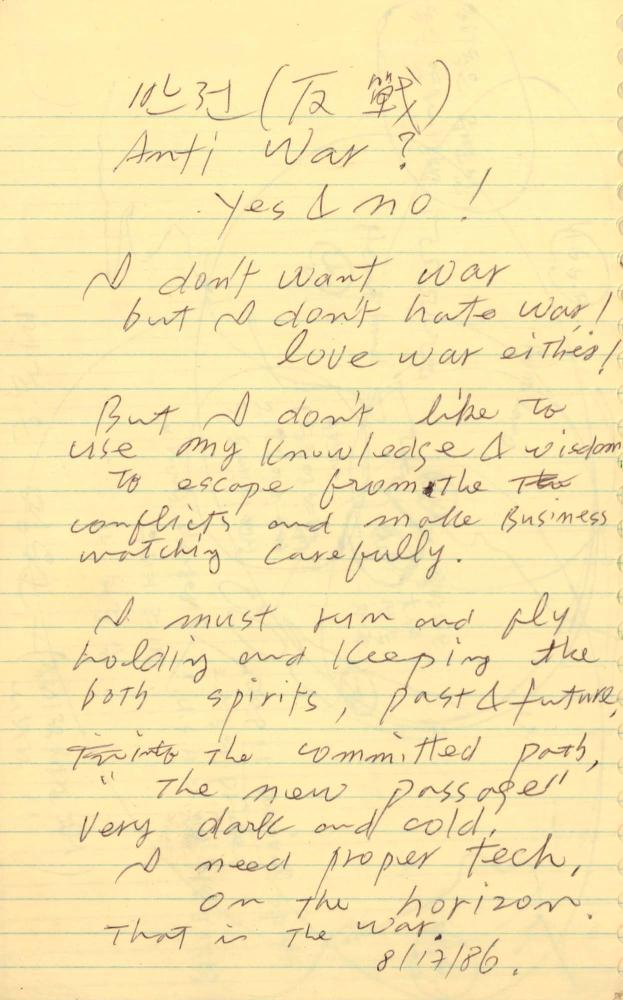 반전 (反 戰)
Anti War?
Yes & no!
I don't want war
but I don't hate war!
love war either!
But I don't like to
use my knowledge & wisdom
to escape from the
conflicts and make Business
watching carefully.
I must run and fly
holding and Keeping the
both spirits, past & future,
the committed path,
"The new passage"
Very dark and cold.
I need proper tech,
on the horizon.
That is the war.
8/17/86.